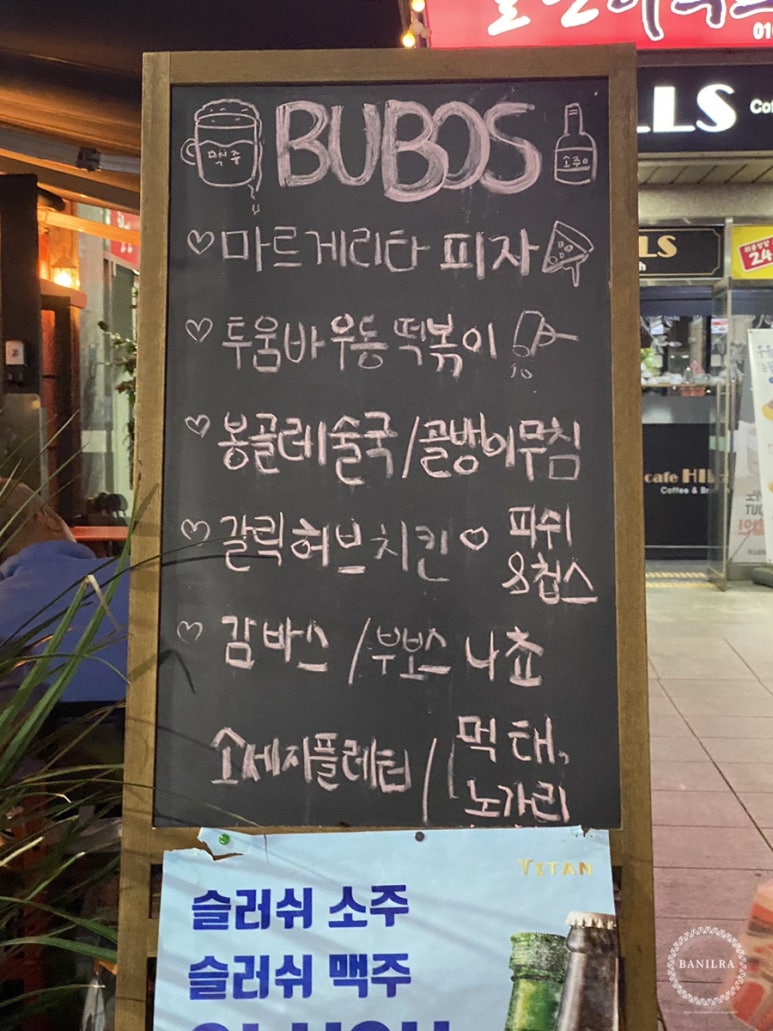 맥주 BUBOS 소주
♡마르게리타 피자
♡투움바우동 떡볶이
♡봉골레술국/골뱅이무침
♡갈릭허브치킨♡ 파쉬
&칩스
♡감바스/부보스 나쵸
소세지플레터/먹태,
노가리
TITAN
슬러쉬 소주
슬러쉬 맥주
LLS
LS
24
cafe
BANILRA